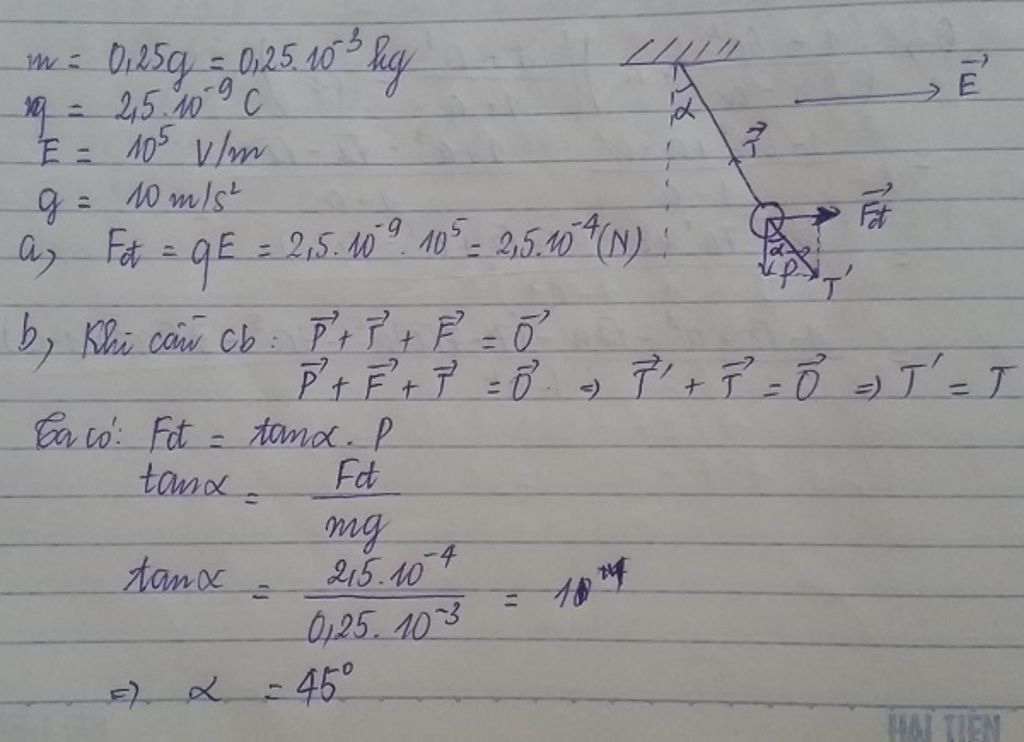 m = 0,25g = 0,25.10⁻³ kg
q = 2,5.10⁻⁹ C
E = 10⁵ V/m
g = 10 m/s²
a, Fđt = qE = 2,5.10⁻⁹.10⁵ = 2,5.10⁻⁴(N)
α
T⃗
E⃗
F⃗đt
α
P
T'
b, Khi cân cb: P⃗ + T⃗ + F⃗ = O⃗
P⃗ + F⃗ + T⃗ = O⃗ ⇒ T⃗' + T⃗ = O⃗ ⇒ T' = T
Ta có: Fđt = tanα. P
tanα = Fđt / mg
tanα = 2,5.10⁻⁴ / 0,25.10⁻³ = 1
⇒ α = 45°
HẢI TIẾN